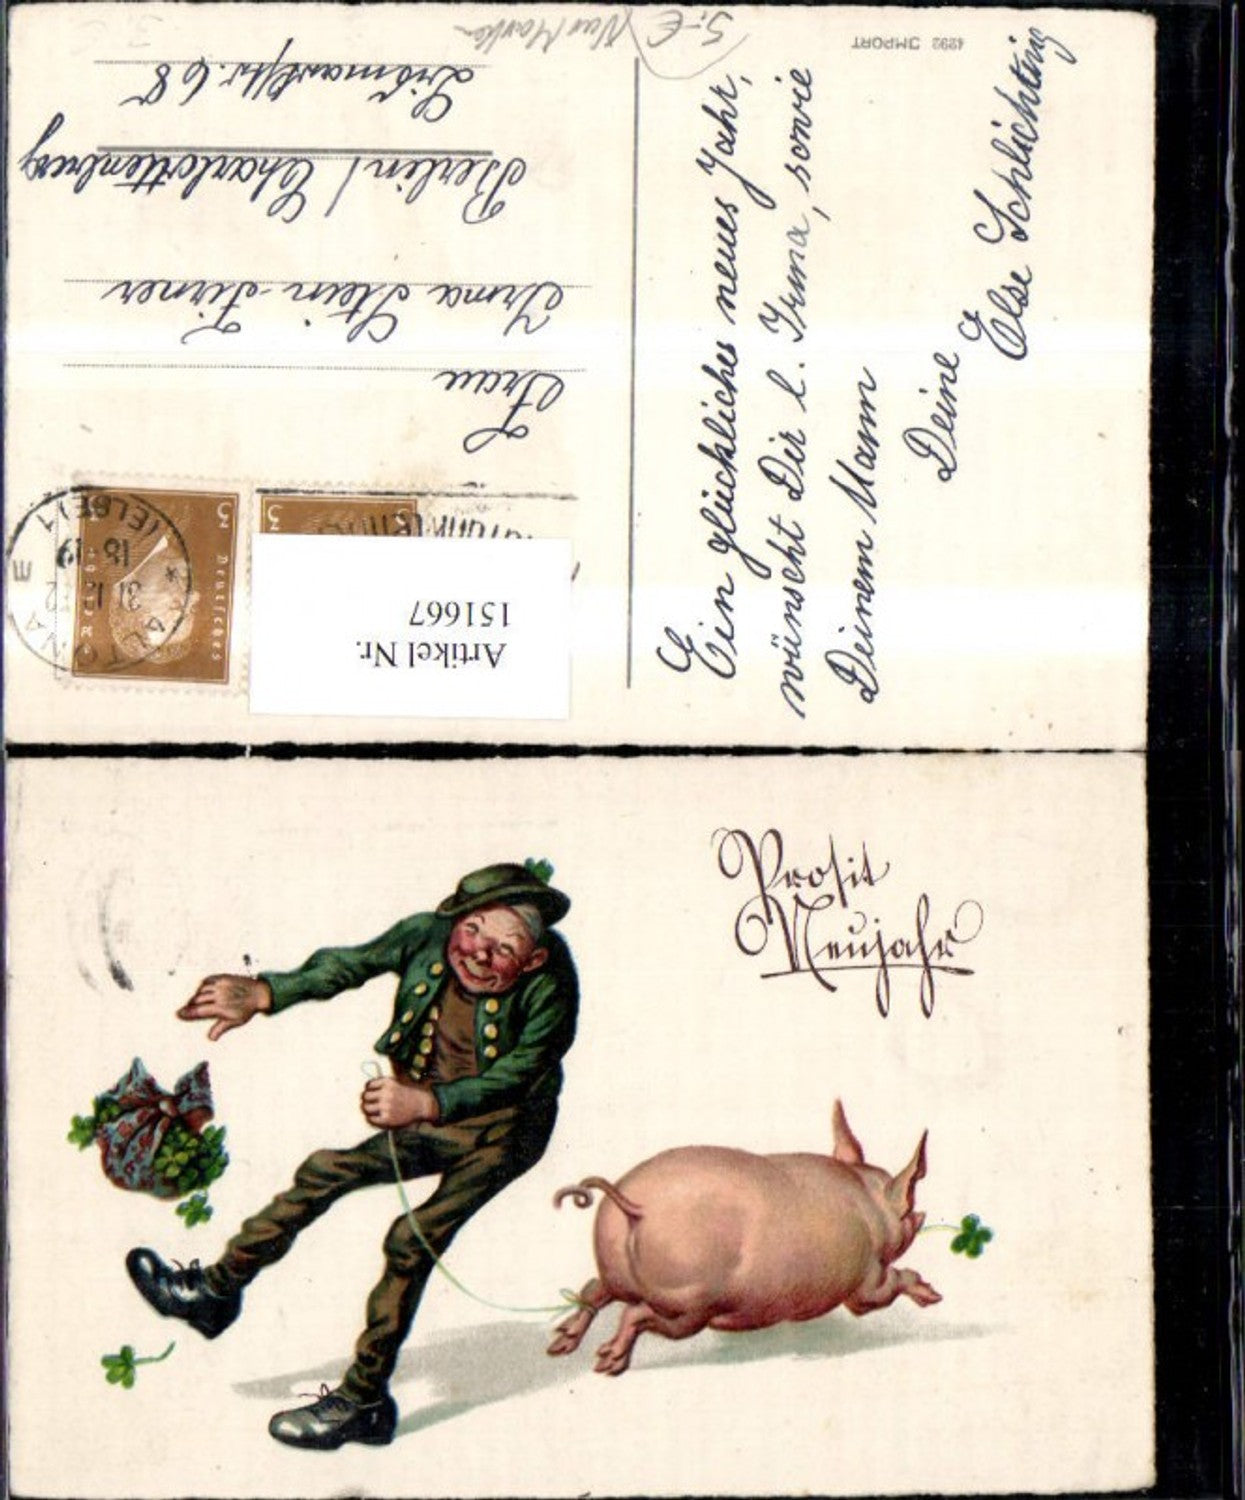 4292 IMPORT
Ein glückliches neues Jahr,
wünscht Dir l. Irma, sowie
Deinem Mann
Deine
Else Schlichting
Frau
Irma Stein-Firner
Berlin / Charlottenburg
Bismarckstr. 68
Artikel Nr.
151667
ALTONA
(ELBE) 1
31.12
18-19
Deutsches
3
3
3
Prosit
Neujahr